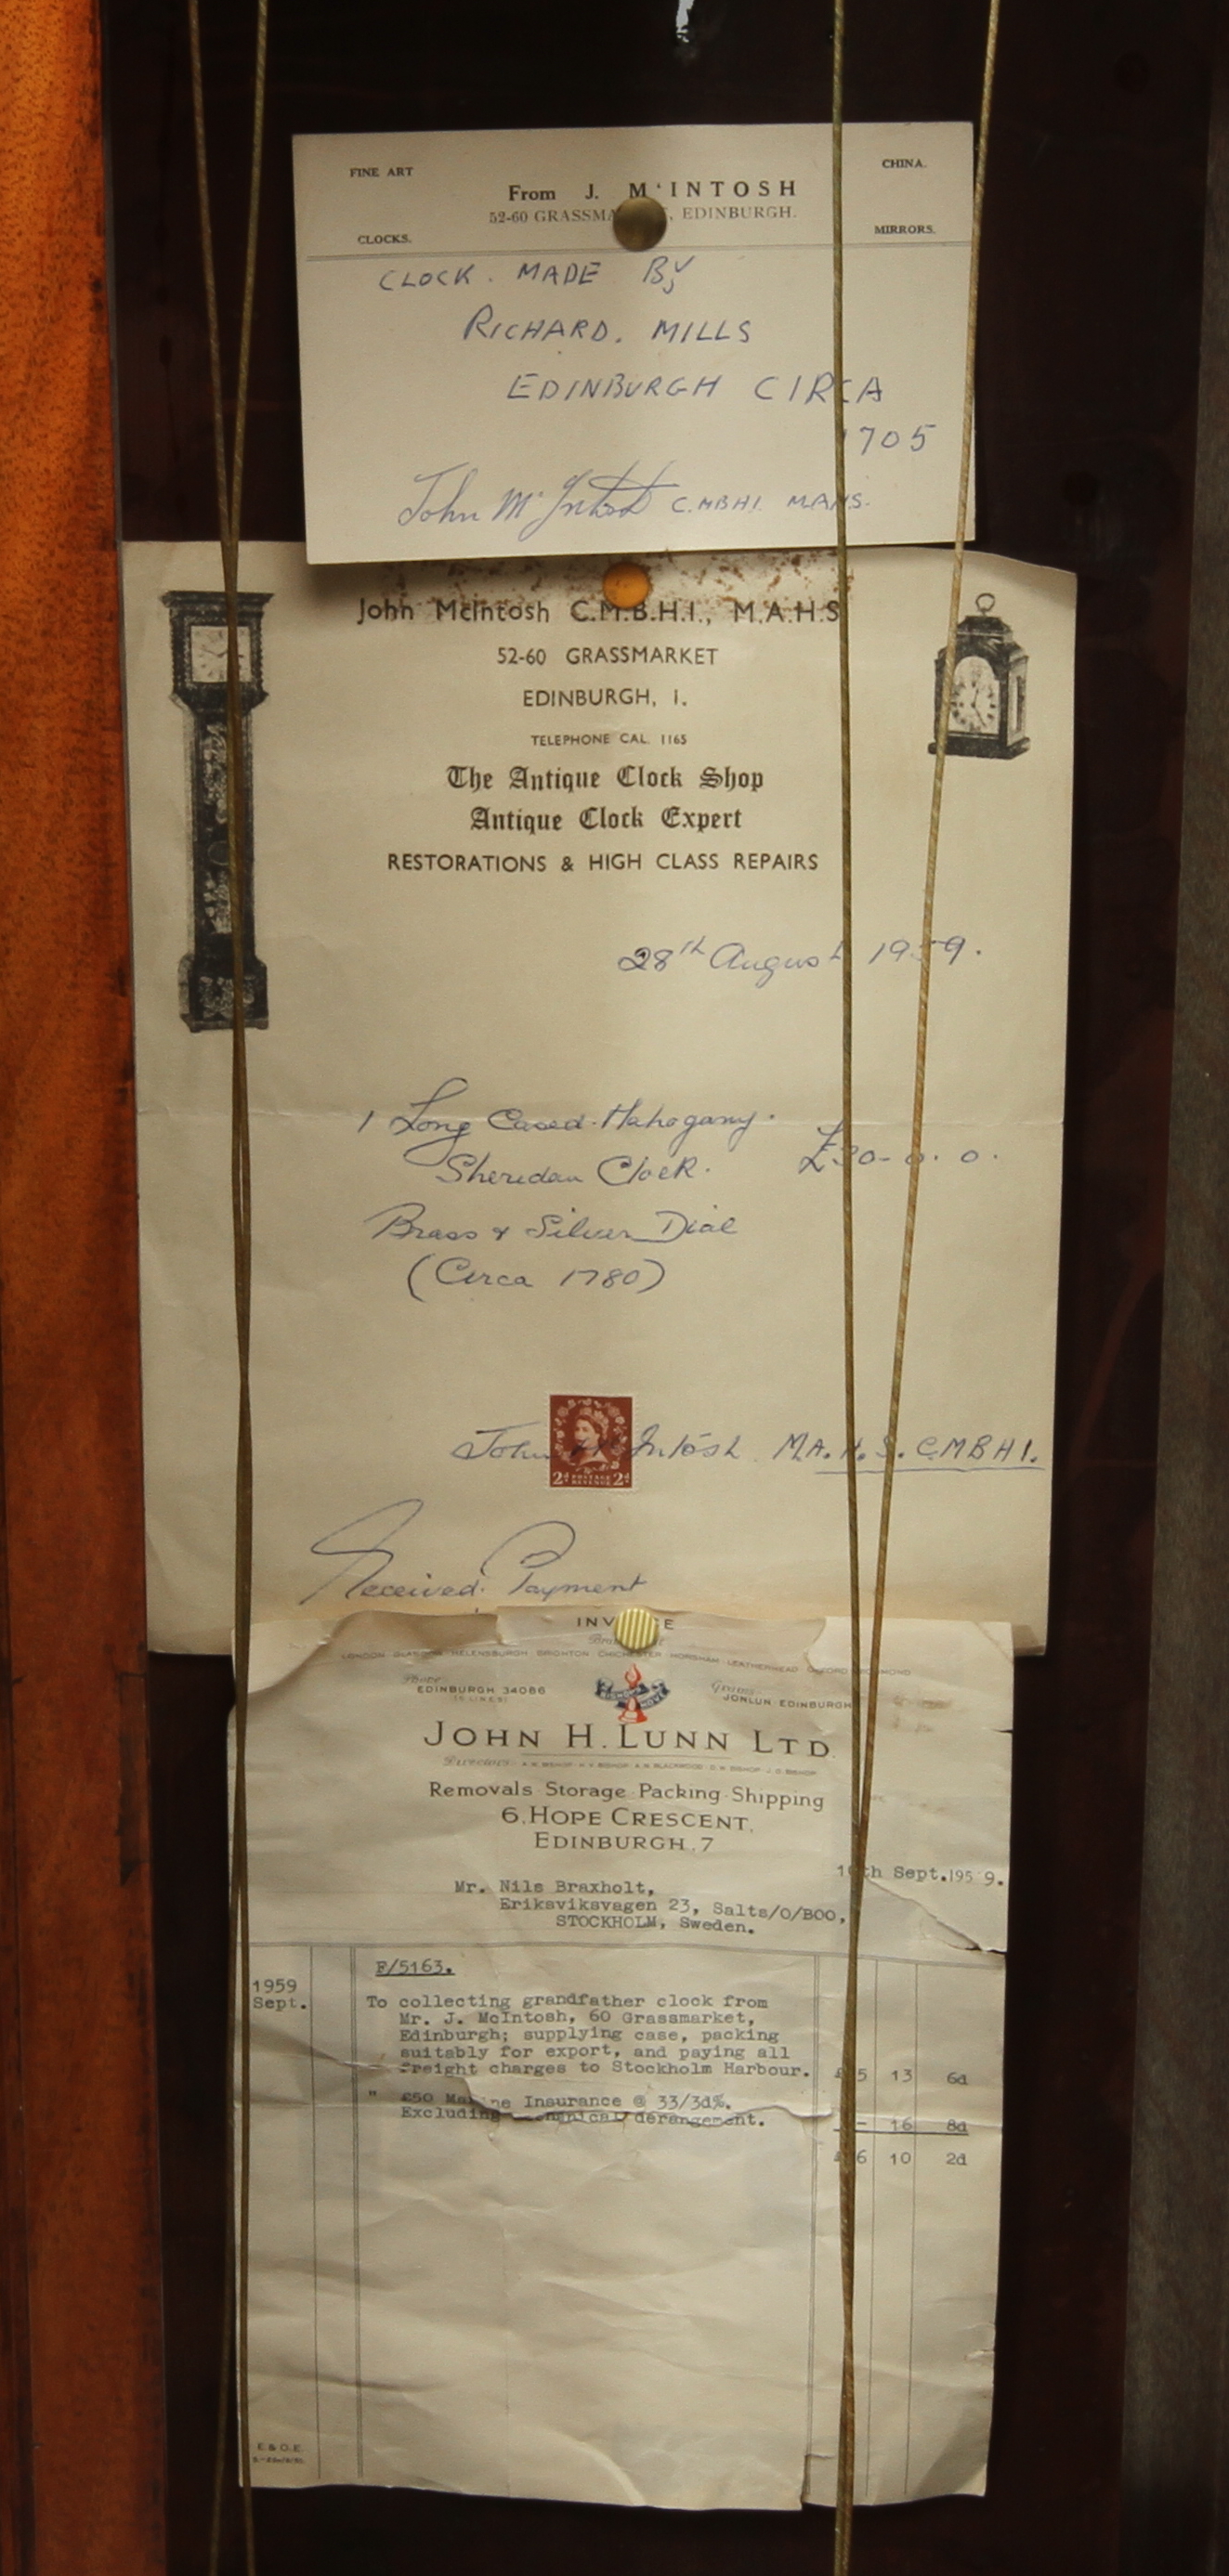 FINE ART
CHINA.
From J. M'INTOSH
52-60 GRASSMA , EDINBURGH.
CLOCKS.
MIRRORS.
CLOCK. MADE By
RICHARD. MILLS
EDINBURGH CIRCA
1705
John McIntosh C.MBHI. MAHS.
John McIntosh C.M.B.H.I., M.A.H.S
52-60 GRASSMARKET
EDINBURGH, 1.
TELEPHONE CAL. 1165
The Antique Clock Shop
Antique Clock Expert
RESTORATIONS & HIGH CLASS REPAIRS
28th August 1959.
1 Long Cased Mahogany.
Sheridan Clock. £30-0.0.
Brass & Silver Dial
(Circa 1780)
John McIntosh M.A.H.S. C.MBHI.
2d POSTAGE REVENUE 2d
Received Payment
INV E
LONDON GLASGOW HELENSBURGH BRIGHTON CHICHESTER HORSHAM LEATHERHEAD OXFORD RICHMOND
Phone
EDINBURGH 34086
(5 LINES)
Grams
JONLUN EDINBURGH
JOHN H. LUNN LTD.
Directors
Removals Storage Packing Shipping
6, HOPE CRESCENT,
EDINBURGH, 7
th Sept. 1959.
Mr. Nils Braxholt,
Eriksviksvagen 23, Salts/O/BOO,
STOCKHOLM, Sweden.
F/5163.
1959
Sept. To collecting grandfather clock from
Mr. J. McIntosh, 60 Grassmarket,
Edinburgh; supplying case, packing
suitably for export, and paying all
freight charges to Stockholm Harbour. 5 13 6d
" £50 Marine Insurance @ 33/3d%.
Excluding mechanical derangement. - 16 8d
6 10 2d
E & O.E.